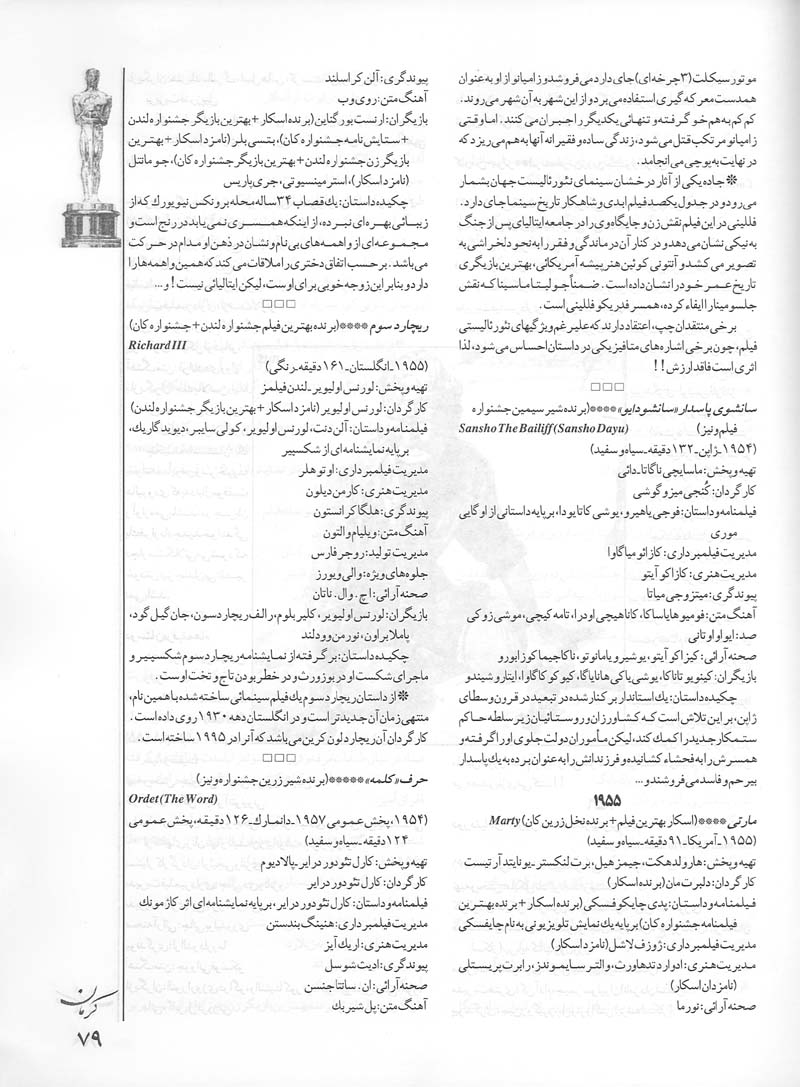 موتور سیکلت (۳ چرخه‌ای) جای دارد می‌فروشد و زامپانو از او به عنوان
همدست معرکه گیری استفاده می‌برد و از این شهر به آن شهر می‌روند.
کم کم به هم خو گرفته و تنهائی یکدیگر را جبران می‌کنند. اما وقتی
زامپانو مرتکب قتل می‌شود، زندگی ساده و فقیرانه آنها به هم می‌ریزد که
در نهایت به پوچی می‌انجامد.
❋ جاده یکی از آثار درخشان سینمای نئورئالیست جهان بشمار
می‌رود و در جدول یکصد فیلم ابدی و شاهکار تاریخ سینما جای دارد.
فللینی در این فیلم نقش زن و جایگاه وی را در جامعه ایتالیای پس از جنگ
به نیکی نشان می‌دهد و در کنار آن درماندگی و فقر را به نحو دلخراشی به
تصویر می‌کشد و آنتونی کوئین هنرپیشه آمریکائی، بهترین بازیگری
تاریخ عمر خود را نشان داده است. ضمناً جولیتا ماسینا که نقش
جلسومینا را ایفاء کرده، همسر فدریکو فللینی است.
برخی منتقدان چپ، اعتقاد دارند که علیرغم ویژگیهای نئورئالیستی
فیلم، چون برخی اشاره‌های متافیزیکی در داستان احساس می‌شود، لذا
اثری است فاقد ارزش!!
□□□
سانشوی پاسدار «سانشودایو» **** (برنده شیر سیمین جشنواره
فیلم ونیز) Sansho The Bailiff (Sansho Dayu)
(۱۹۵۴ـ ژاپن ـ ۱۳۲ دقیقه ـ سیاه و سفید)
تهیه و پخش: ماسایچی ناگاتا ـ دائی
کارگردان: کُنجی میزوگوشی
فیلمنامه و داستان: فوجی یاهیرو، یوشی کاتا یودا، برپایه داستانی از اوگایی
موری
مدیریت فیلمبرداری: کازائو میاگاوا
مدیریت هنری: کازاکو آیتو
پیوندگری: میتزوجی میاتا
آهنگ متن: فومیو هایاساکا، کاناهیچی اودرا، تامه کیچی، موشی زوکی
صد: ایواو اوتانی
صحنه آرائی: کیزاکو آیتو، یوشیرو یامانوتو، ناکاجیما کوزابورو
بازیگران: کینویو تاناکا، یوشی یاکی هانایاگا، کیوکو کاگاوا، ایتارو شیندو
چکیده داستان: یک استاندار برکنار شده در تبعید در قرون وسطای
ژاپن، بر این تلاش است که کشاورزان و روستائیان زیر سلطه حاکم
ستمکار جدید را کمک کند، لیکن مأموران دولت جلوی او را گرفته و
همسرش را به فحشاء کشانیده و فرزندانش را به عنوان برده به یک پاسدار
بیرحم و فاسد می‌فروشند و...
۱۹۵۵
مارتی **** (اسکار بهترین فیلم + برنده نخل زرین کان) Marty
(۱۹۵۵ ـ آمریکا ـ ۹۱ دقیقه ـ سیاه و سفید)
تهیه و پخش: هارولد هکت، جیمز هیل، برت لنکستر ـ یونایتد آرتیست
کارگردان: دلبرت مان (برنده اسکار)
فیلمنامه و داستان: پدی چایکوفسکی (برنده اسکار + برنده بهترین
فیلمنامه جشنواره کان) برپایه یک نمایش تلویزیونی به نام چایفسکی
مدیریت فیلمبرداری: ژوزف لاشل (نامزد اسکار)
مدیریت هنری: ادوارد تدهاورث، والتر سایموندز، رابرت پریستلی
(نامزدان اسکار)
صحنه آرائی: نورما
پیوندگری: آلن کراسلند
آهنگ متن: روی وب
بازیگران: ارنست بورگناین (برنده اسکار + بهترین بازیگر جشنواره لندن
+ ستایش نامه جشنواره کان)، بتسی بلر (نامزد اسکار + بهترین
بازیگر زن جشنواره لندن + بهترین بازیگر جشنواره کان)، جو مانتل
(نامزد اسکار)، استر مینسیوتی، جری پاریس
چکیده داستان: یك قصاب ۳۴ ساله محله برونکس نیویورك که از
زیبائی بهره‌ای نبرده، از اینکه همسری نمی‌یابد در رنج است و
مجموعه‌ای از واهمه‌های بی‌نام و نشان در ذهن او مدام در حرکت
می‌باشد. برحسب اتفاق دختری را ملاقات می‌کند که همین واهمه‌ها را
دارد و بنابراین زوجه خوبی برای اوست، لیکن ایتالیائی نیست! و...
□□□
ریچارد سوم **** (برنده بهترین فیلم جشنواره لندن + جشنواره کان)
Richard III
(۱۹۵۵ ـ انگلستان ـ ۱۶۱ دقیقه ـ رنگی)
تهیه و پخش: لورنس اولیویر ـ لندن فیلمز
کارگردان: لورنس اولیویر (نامزد اسکار + بهترین بازیگر جشنواره لندن)
فیلمنامه و داستان: آلن دنت، لورنس اولیویر، کولی سایبر، دیوید گاریك،
بر پایه نمایشنامه‌ای از شکسپیر
مدیریت فیلمبرداری: اوتو هلر
مدیریت هنری: کارمن دیلون
پیوندگری: هلگا کرانستون
آهنگ متن: ویلیام والتون
مدیریت تولید: روجر فارس
جلوه‌های ویژه: والی ویورز
صحنه آرائی: اچ. وال. ناتان
بازیگران: لورنس اولیویر، کلیر بلوم، رالف ریچاردسون، جان گیل گود،
پاملا براون، نورمن وودلند
چکیده داستان: برگرفته از نمایشنامه ریچارد سوم شکسپیر و
ماجرای شکست او در بوزورث و در خطر بودن تاج و تخت اوست.
❋ از داستان ریچارد سوم یك فیلم سینمائی ساخته شده با همین نام،
منتهی زمان آن جدیدتر است و در انگلستان دهه ۱۹۳۰ روی داده است.
کارگردان آن ریچارد لون کرین می‌باشد که آنرا در ۱۹۹۵ ساخته است.
□□□
حرف «کلمه» ***** (برنده شیر زرین جشنواره ونیز)
Ordet (The Word)
(۱۹۵۴، پخش عمومی ۱۹۵۷ ـ دانمارك ـ ۱۲۶ دقیقه، پخش عمومی
۱۲۴ دقیقه ـ سیاه و سفید)
تهیه و پخش: کارل تئودور درایر ـ پالادیوم
کارگردان: کارل تئودور درایر
فیلمنامه و داستان: کارل تئودور درایر، برپایه نمایشنامه‌ای اثر کاژ مونك
مدیریت فیلمبرداری: هنینگ بندستن
مدیریت هنری: اریك آیز
پیوندگری: ادیت شوسل
صحنه آرائی: ان. سانتا جنسن
آهنگ متن: پل شیربك
کرمان
۷۹